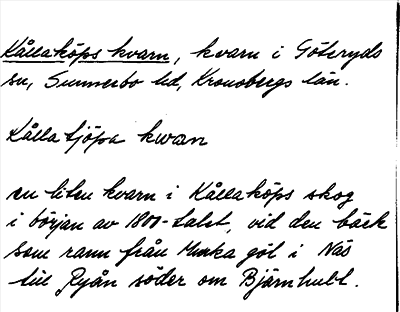 Kållaköps kvarn, kvarn i Göteryds
sn, Sunnerbo hd, Kronobergs län.
Kålla tjöpa kwan
en liten kvarn i Kållaköps skog
i början av 1800-talet, vid den bäck
som rann från Munka göl i Näs
till Ryån söder om Björnhult.